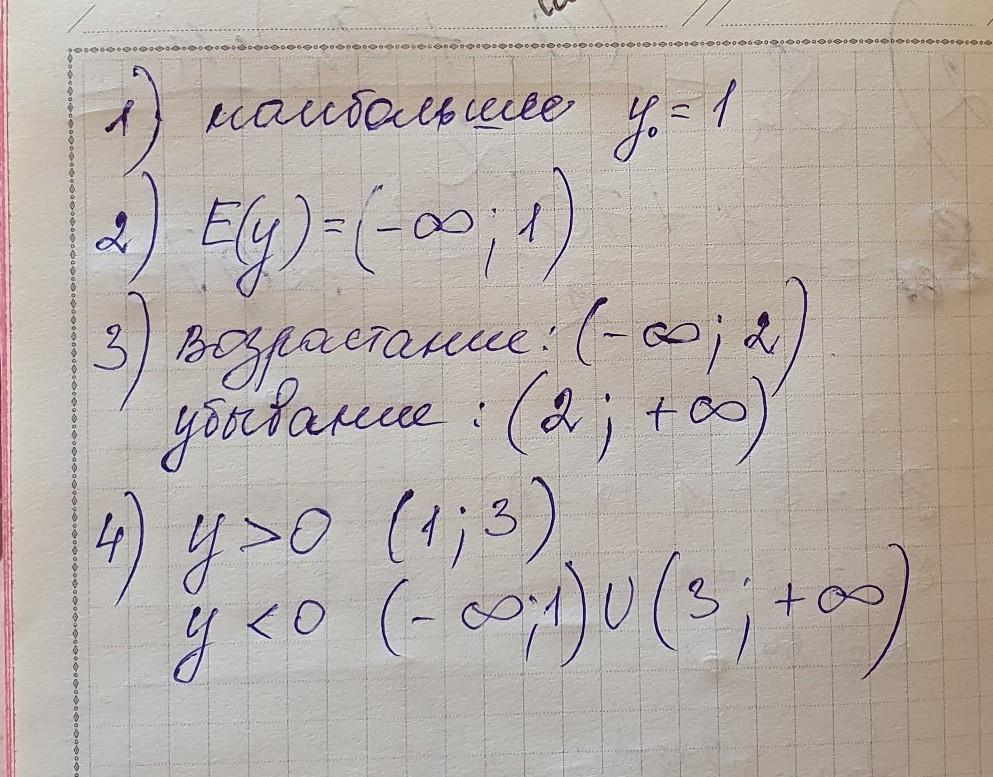 1) наибольшее y₀ = 1
2) E(y) = (-∞; 1)
3) возрастание: (-∞; 2)
убывание: (2; +∞)
4) y > 0 (1; 3)
y < 0 (-∞; 1) U (3; +∞)